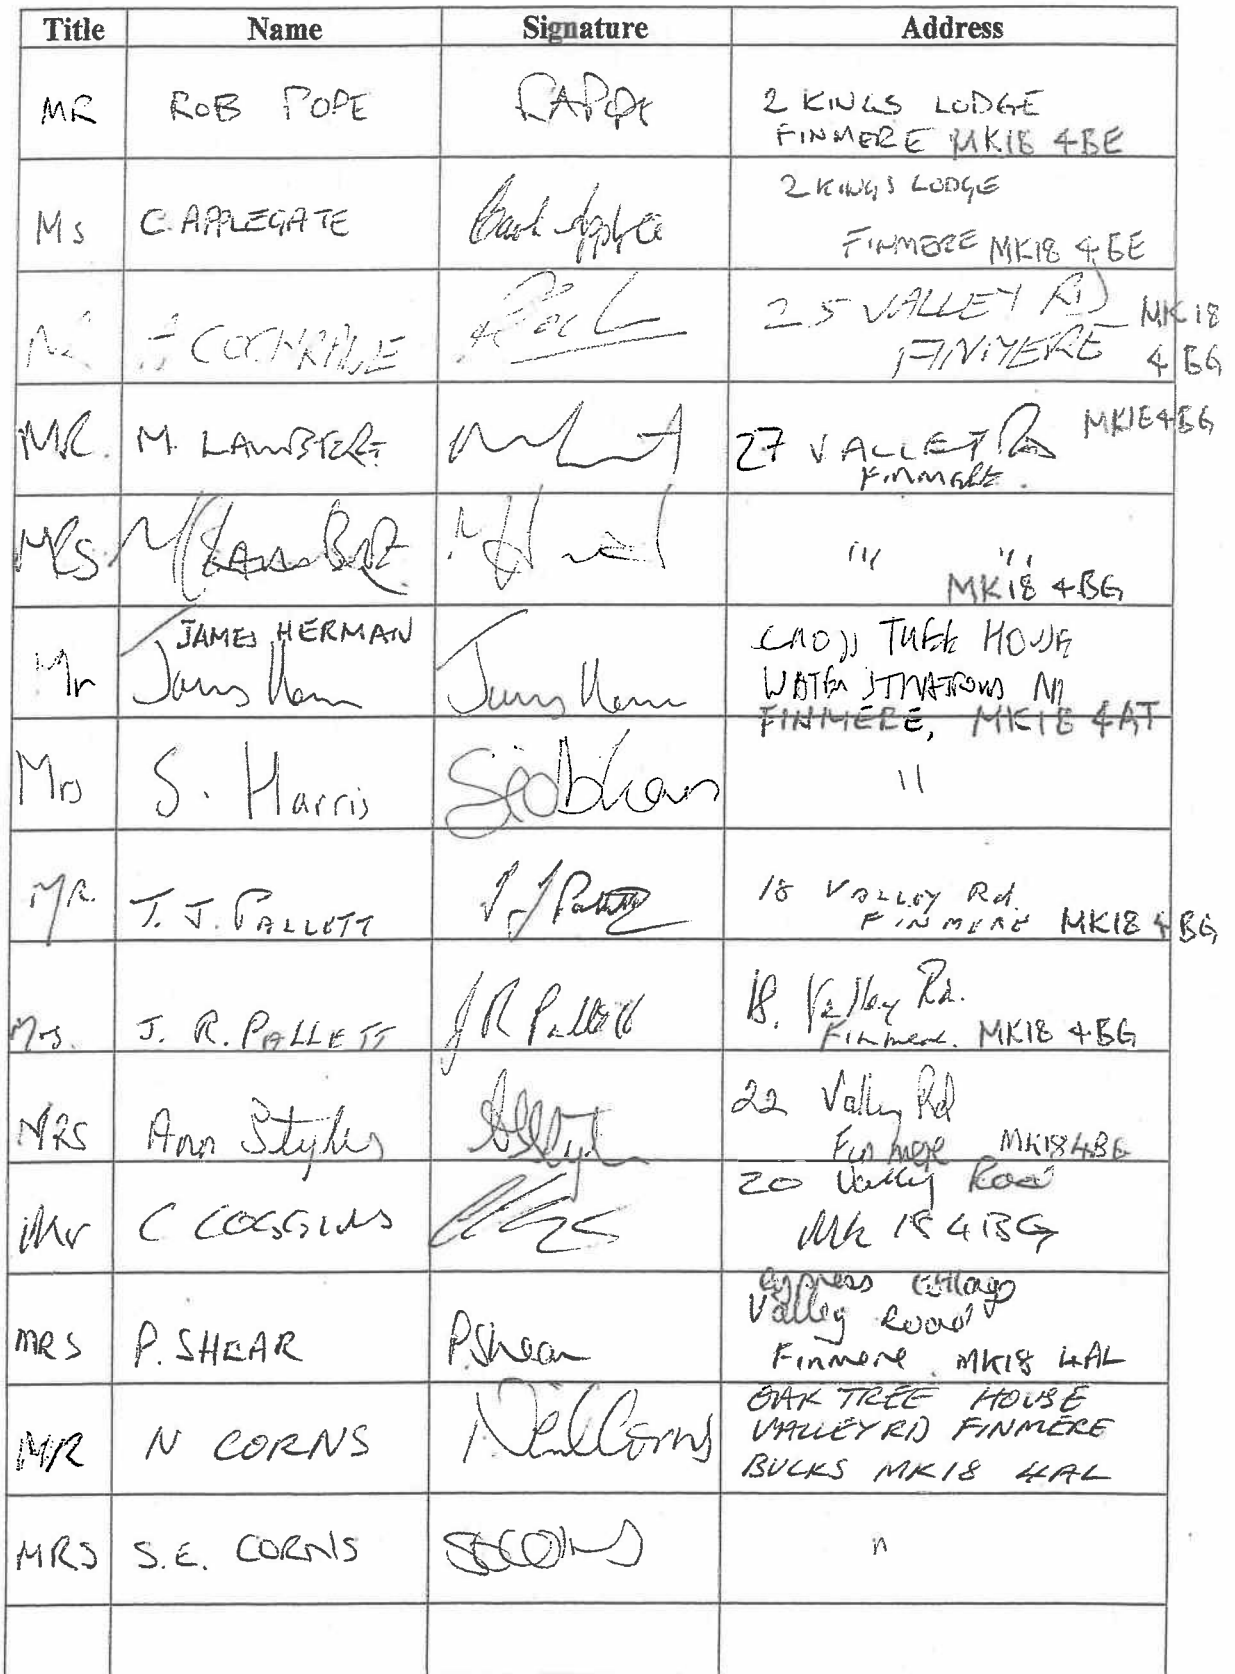 Title Name Signature Address
MR ROB POPE RAPope 2 KINGS LODGE
FINMERE MK18 4BE
Ms C. APPLEGATE 2 KINGS LODGE
FINMERE MK18 4BE
COCHRANE 25 VALLEY RD MK18
FINMERE 4BG
MR. M. LAMBERT 27 VALLEY RD MK18 4BG
FINMERE.
MRS 
MK18 4BG
Mr JAMES HERMAN TREE HOUSE
WATER STRATFORD RD
FINMERE, MK18 4AT
Mrs S. Harris Siobhan "
MR. T. J. PALLETT 18 VALLEY Rd.
FINMERE MK18 4BG
Mrs. J. R. PALLETT J R Pallett 18. Valley Rd.
Finmere. MK18 4BG
MRS Ann Styles 22 Valley Rd
Finmere MK18 4BG
Mr C COGGINS 20 Valley Road
MK 18 4BG
MRS P. SHEAR P. Shear Cypress Cottage
Valley Road
Finmere. MK18 4AL
MR N CORNS Neil Corns OAK TREE HOUSE
VALLEY RD FINMERE
BUCKS MK18 4AL
MRS S.E. CORNS SECORNS "